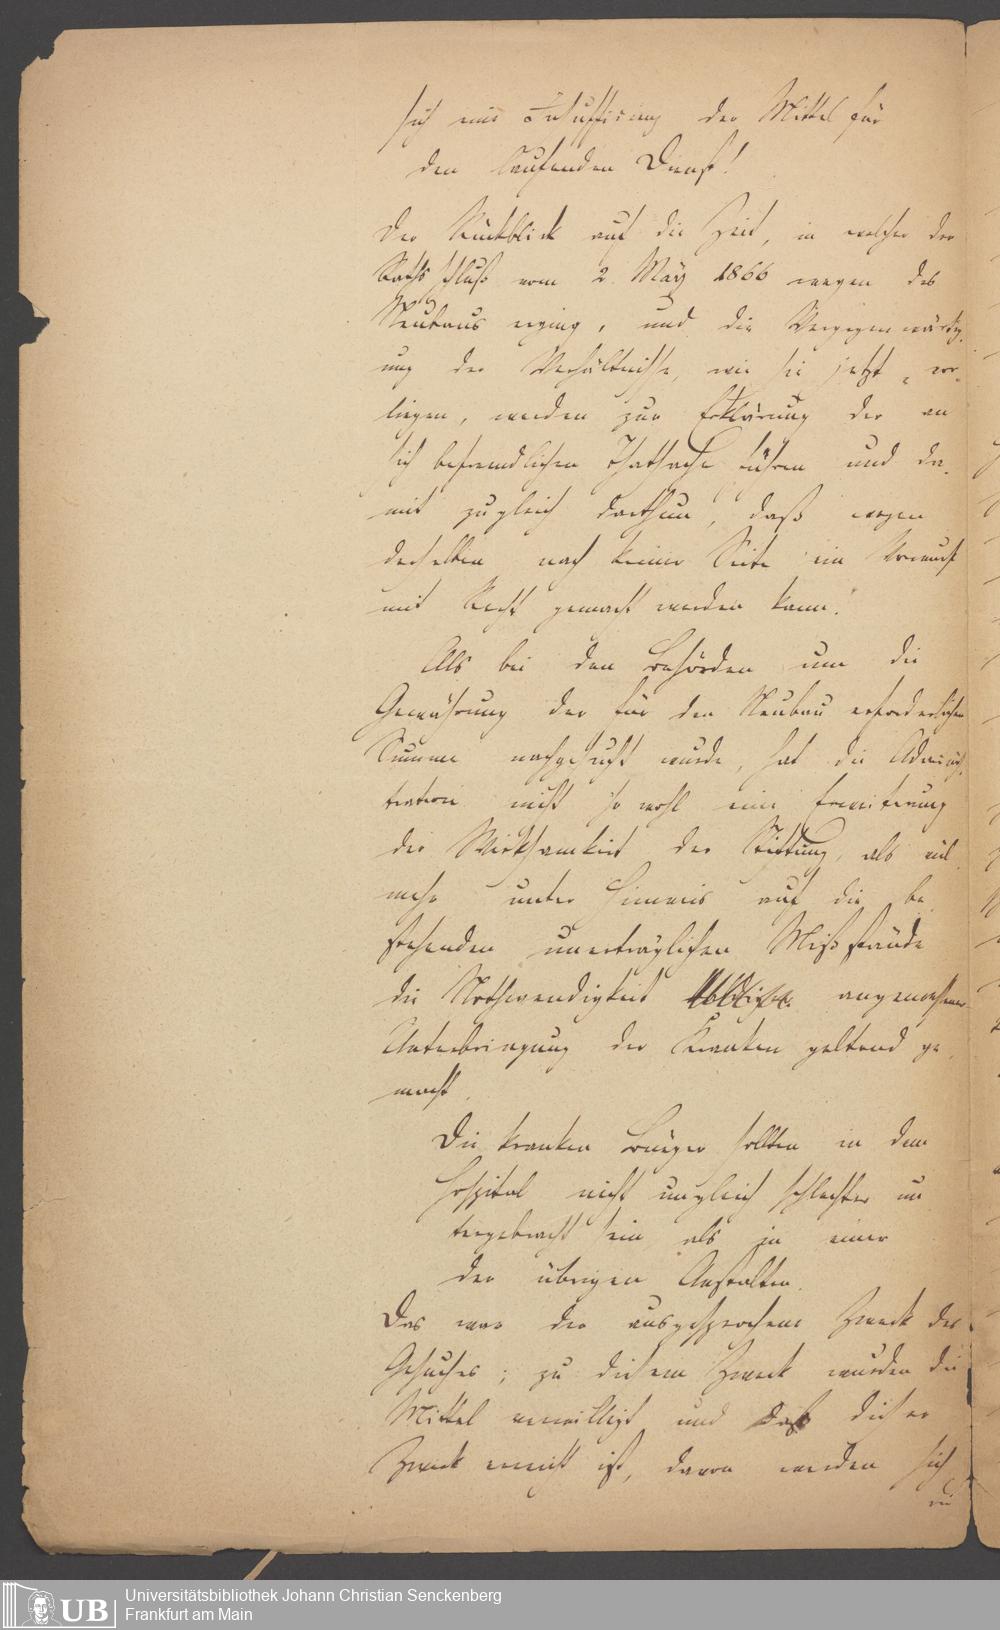 sich eine Insufficienz der Mittel für
den laufenden Dienst!
Der Rückblick auf die Zeit, in welcher der
Rathschluß vom 2. März 1866 wegen des
Neubaus erging, und die Vergegenwärtig-
ung der Verhältnisse, wie sie jetzt vor-
liegen, werden zur Erklärung der an
sich befremdlichen Thatsache führen und da-
mit zugleich darthun, daß wegen
derselben nach keiner Seite ein Vorwurf
mit Recht gemacht werden kann.
Als bei den Behörden um die
Gewährung der für den Neubau erforderlichen
Summe nachgesucht wurde, hat die Adminis-
tration nicht sowohl eine Erweiterung
der Wirksamkeit der Stiftung, als viel-
mehr unter Hinweis auf die be-
stehenden unerträglichen Mißstände
die Nothwendigkeit angemessener
Unterbringung der Kranken geltend ge-
macht.
Die kranken Bürger sollten in dem
Hospital nicht ungleich schlechter un-
tergebracht sein als in einer
der übrigen Anstalten.
Das war der ausgesprochene Zweck des
Gesuches; zu diesem Zweck wurden die
Mittel verwilligt und daß dieser
Zweck erreicht ist, davon werden sich
die
UB
Universitätsbibliothek Johann Christian Senckenberg
Frankfurt am Main